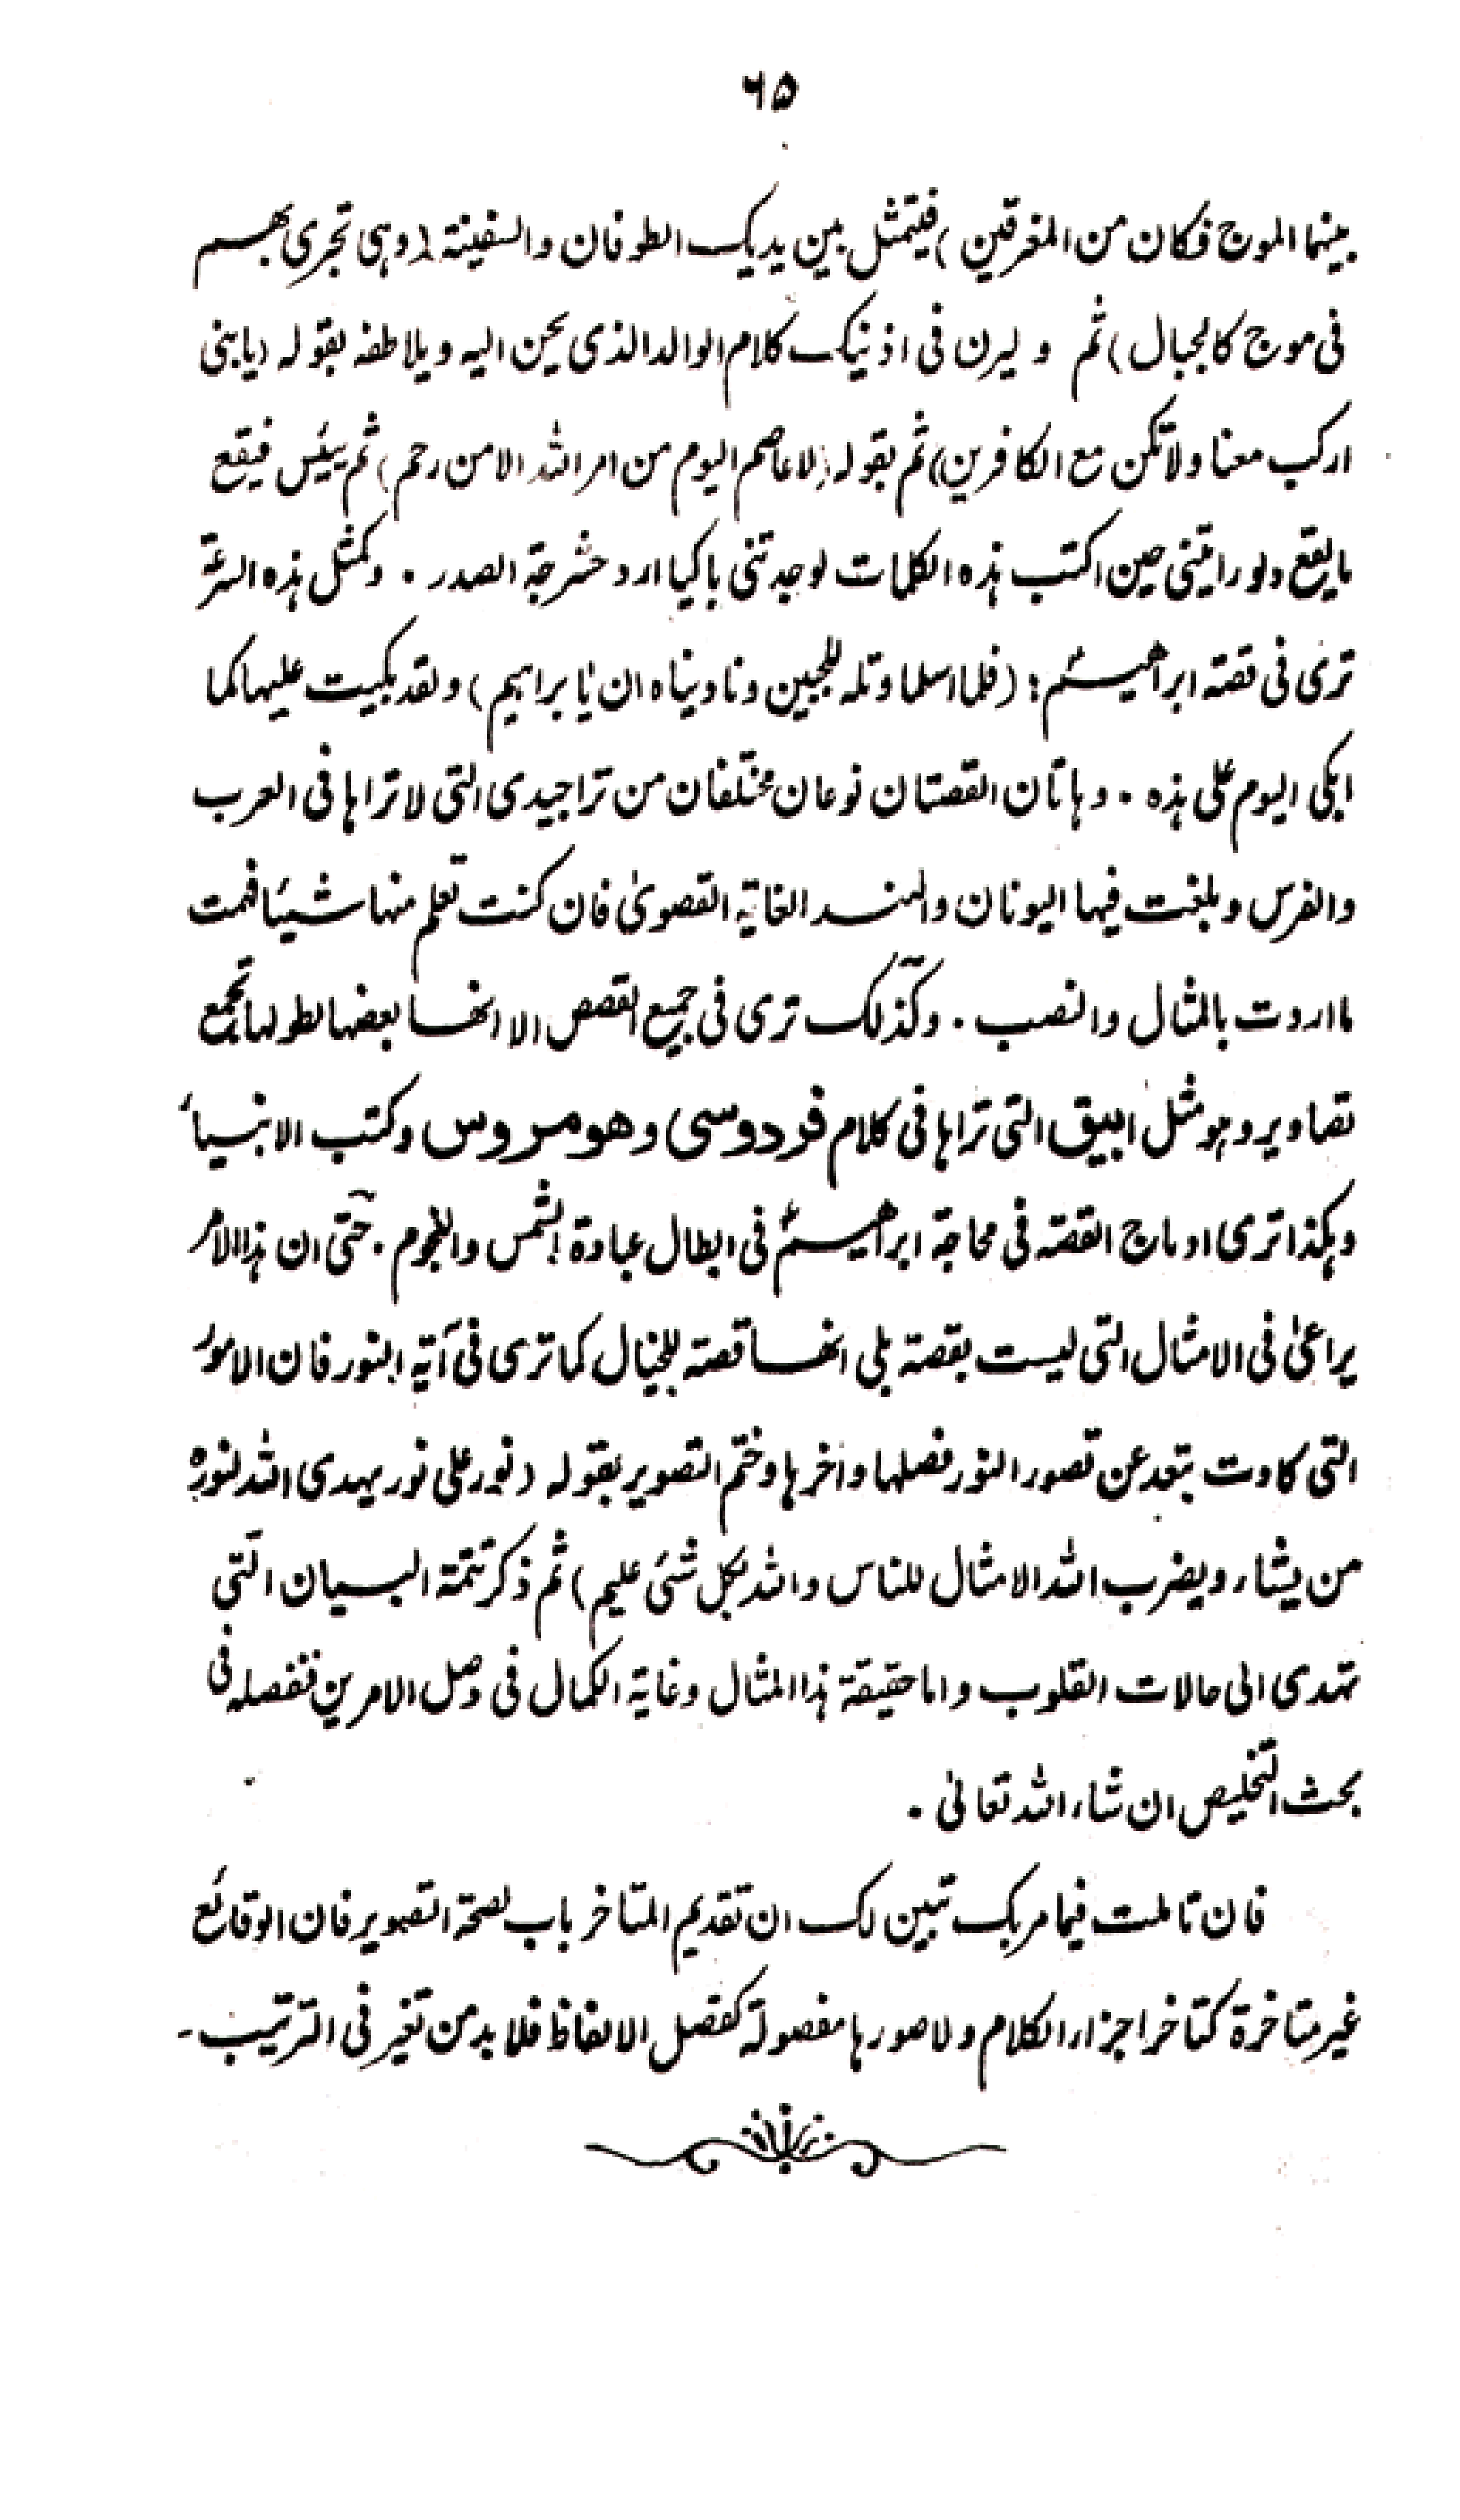 ٦٥
بينهما الموج فكان من المغرقين) فيتمثل بين يديك الطوفان والسفينة (وهي تجري بهم
في موج كالجبال) ثم وليرن في اذنيك كلام الوالد الذي يحن اليه ويلاطفه بقوله (يا بني
اركب معنا ولا تكن مع الكافرين) ثم بقوله (لا عاصم اليوم من امر الله الا من رحم) ثم ييئس فيقع
ما يقع ولو رايتني حين اكتب هذه الكلمات لوجدتني باكيا ارد حشرجة الصدر. وكمثل هذه السرعة
ترى في قصة ابراهيمؑ: (فلما اسلما وتله للجبين وناديناه ان يٰابراهيم) ولقد بكيت عليها كما
ابكي اليوم على هذه. وهاتان القصتان نوعان مختلفان من تراجيدى التي لا تراها في العرب
والفرس وبلغت فيها اليونان والهند الغاية القصوىٰ فان كنت تعلم منها شيئا فهمت
ما اردت بالمثال والنصب. وكذلك ترى في جميع القصص الا انها بعضها لطولها تجمع
تصاوير وهو مثل ايپيق التي تراها في كلام فردوسي وهومروس وكتب الانبياء
وهكذا ترى ادماج القصة في محاجة ابراهيمؑ في ابطال عبادة الشمس والنجوم. حتى ان هذا الامر
يراعىٰ في الامثال التي ليست بقصة بلى انها قصة للخيال كما ترى في آية النور فان الامور
التي كادت تبعد عن تصور النور فصلها واخرها وختم التصوير بقوله (نور على نور يهدى الله لنوره
من يشاء ويضرب الله الامثال للناس والله بكل شئ عليم) ثم ذكر تتمة البيان التي
تهدى الى حالات القلوب واما حقيقة هذا المثال وغاية الكمال في وصل الامرين فنفصله في
بحث التخليص ان شاء الله تعالىٰ.
فان تاملت فيما مر بك تبين لك ان تقديم المتاخر باب لصحة التصوير فان الوقائع
غير متاخرة كتاخر اجزاء الكلام ولا صورها مفصولة كفصل الالفاظ فلا بد من تغير في الترتيب-